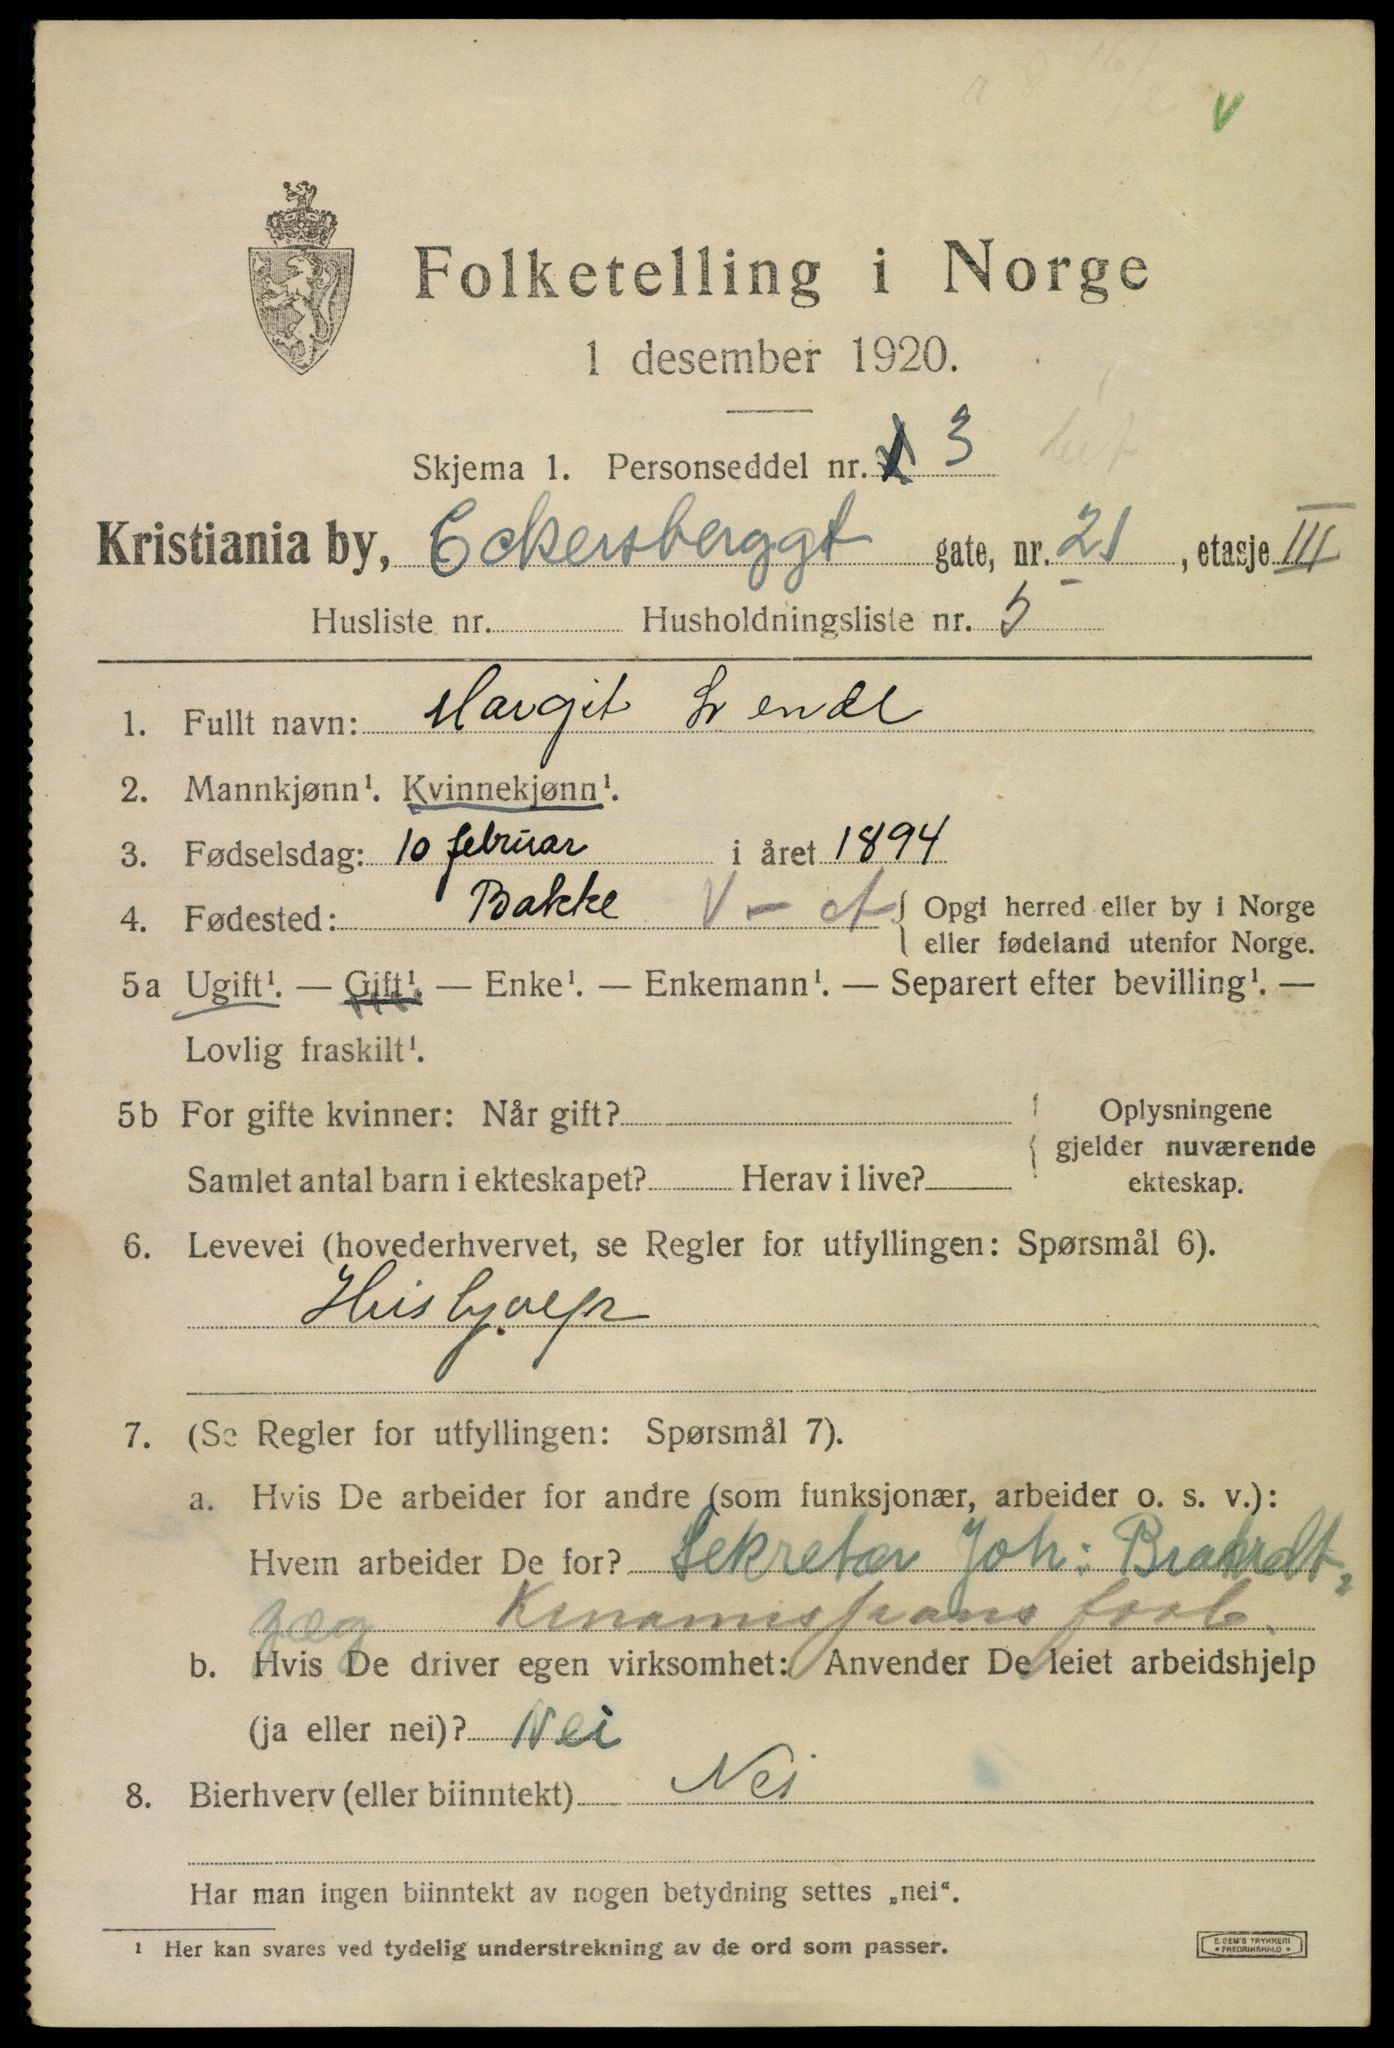 V
Folketelling i Norge
1 desember 1920.
Skjema 1. Personseddel nr. 3
Kristiania by, Eckersberggt gate, nr. 21, etasje III
Husliste nr. Husholdningsliste nr. 5
1. Fullt navn: Margit Lende
2. Mannkjønn¹. Kvinnekjønn¹.
3. Fødselsdag: 10 februar i året 1894
4. Fødested: Bakke V - A { Opgi herred eller by i Norge
eller fødeland utenfor Norge.
5a Ugift¹. — Gift¹. — Enke¹. — Enkemann¹. — Separert efter bevilling¹. —
Lovlig fraskilt¹.
5b For gifte kvinner: Når gift? Oplysningene
gjelder nuværende
Samlet antal barn i ekteskapet? Herav i live? ekteskap.
6. Levevei (hovederhvervet, se Regler for utfyllingen: Spørsmål 6).
Hushjælp
7. (Se Regler for utfyllingen: Spørsmål 7).
a. Hvis De arbeider for andre (som funksjonær, arbeider o. s. v.):
Hvem arbeider De for? Sekretær Joh: Brandt-
zæg
b. Hvis De driver egen virksomhet: Anvender De leiet arbeidshjelp
(ja eller nei)? Nei
8. Bierhverv (eller biinntekt) Nei
Har man ingen biinntekt av nogen betydning settes „nei“.
¹ Her kan svares ved tydelig understrekning av de ord som passer.
E. SEM'S TRYKKERI
* FREDRIKSHALD *